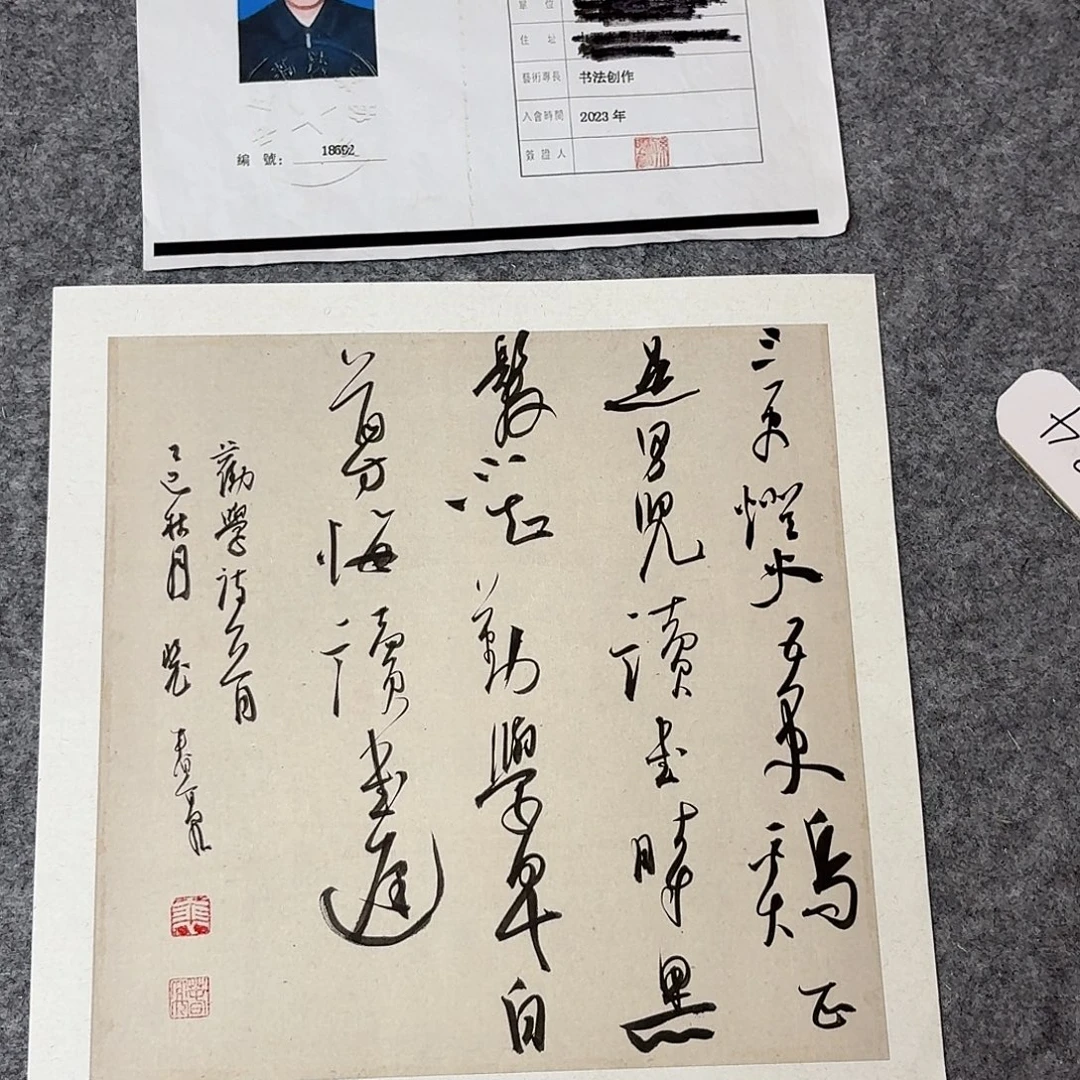 單 位
住 址
藝術專長 书法创作
入會時間 2023 年
簽證人
編 號: 18692
三更燈火五更鷄正
是男兒讀書時黑
髮不知勤學早白
首方悔讀書遲
勸學詩一首
乙巳秋月